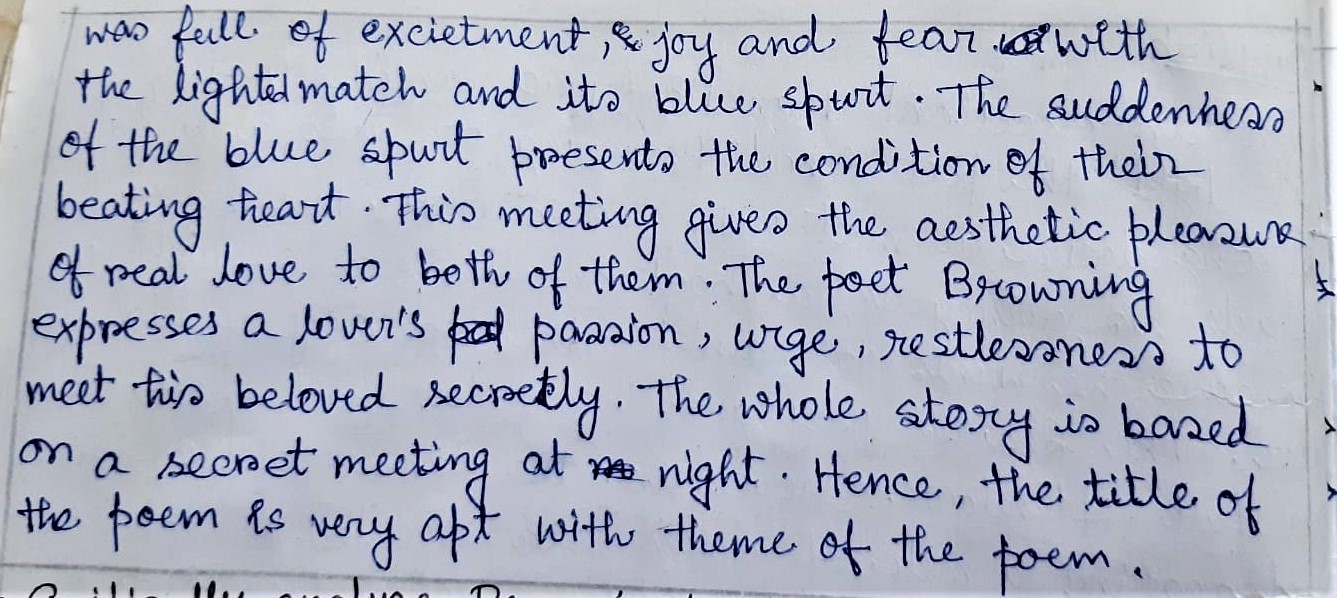 was full of excietment, & joy and fear with
the lighted match and its blue spurt. The suddenness
of the blue spurt presents the condition of their
beating heart. This meeting gives the aesthetic pleasure
of real love to both of them. The poet Browning
expresses a lover's passion, urge, restlessness to
meet his beloved secretly. The whole story is based
on a secret meeting at night. Hence, the title of
the poem is very apt with theme of the poem.